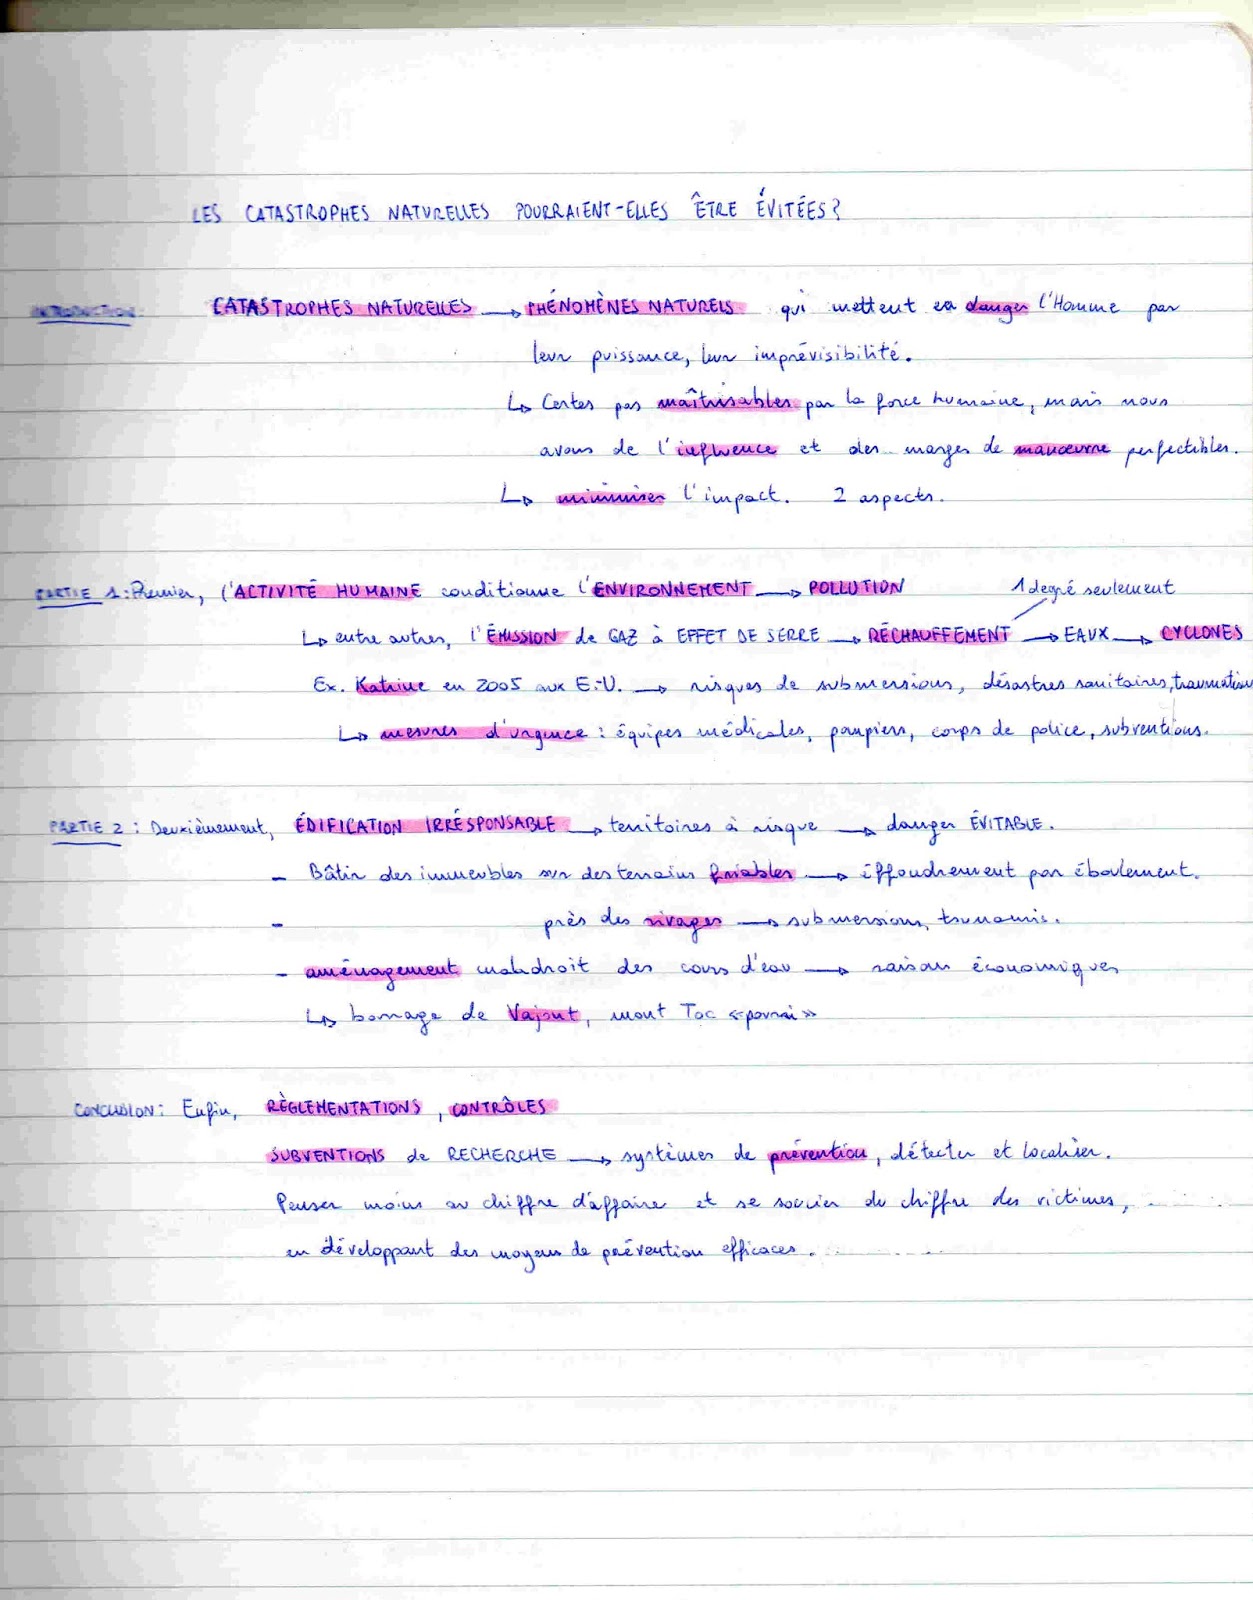 LES CATASTROPHES NATURELLES POURRAIENT-ELLES ÊTRE ÉVITÉES?
INTRODUCTION: CATASTROPHES NATURELLES → PHÉNOMÈNES NATURELS qui mettent en danger l'Homme par
leur puissance, leur imprévisibilité.
↳ Certes pas maîtrisables par la force humaine, mais nous
avons de l'influence et des marges de manœuvre perfectibles.
↳ minimiser l'impact. 2 aspects.
1 degré seulement
PARTIE 1: Premier, l'ACTIVITÉ HUMAINE conditionne l'ENVIRONNEMENT → POLLUTION
↳ entre autres, l'ÉMISSION de GAZ à EFFET DE SERRE → RÉCHAUFFEMENT → EAUX → CYCLONES
Ex. Katrine en 2005 aux E.-U. → risques de submersions, désastres sanitaires,
↳ mesures d'urgence : équipes médicales, pompiers, corps de police, subventions.
PARTIE 2 : Deuxièmement, ÉDIFICATION IRRÉSPONSABLE → territoires à risque → danger ÉVITABLE.
- Bâtir des immeubles sur des terrains friables → éffondrement par éboulement.
- près des rivages → submersion, tsunamis.
- aménagement maladroit des cours d'eau → raisons économiques
↳ barrage de Vajont, mont Toc «pourri»
CONCLUSION: Enfin, RÈGLEMENTATIONS, CONTRÔLES
SUBVENTIONS de RECHERCHE → systèmes de prévention, détecter et localiser.
Penser moins au chiffre d'affaire et se soucier du chiffre des victimes,
en développant des moyens de prévention efficaces.